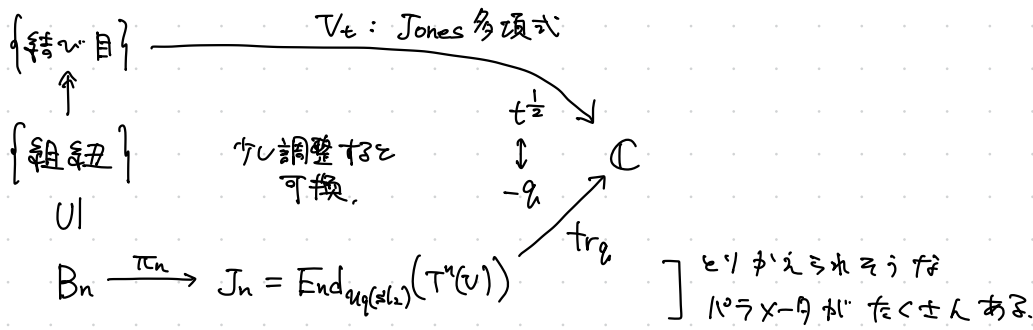 {結び目}
V_t : Jones 多項式
t^{\frac{1}{2}}
↕
-q
{組紐}
少し調整すると
可換.
ℂ
∪|
tr_q
B_n \xrightarrow{π_n} J_n = End_{U_q(𝔰𝔩_2)}(T^n(V))
] とりかえられそうな
パラメータが たくさん ある.